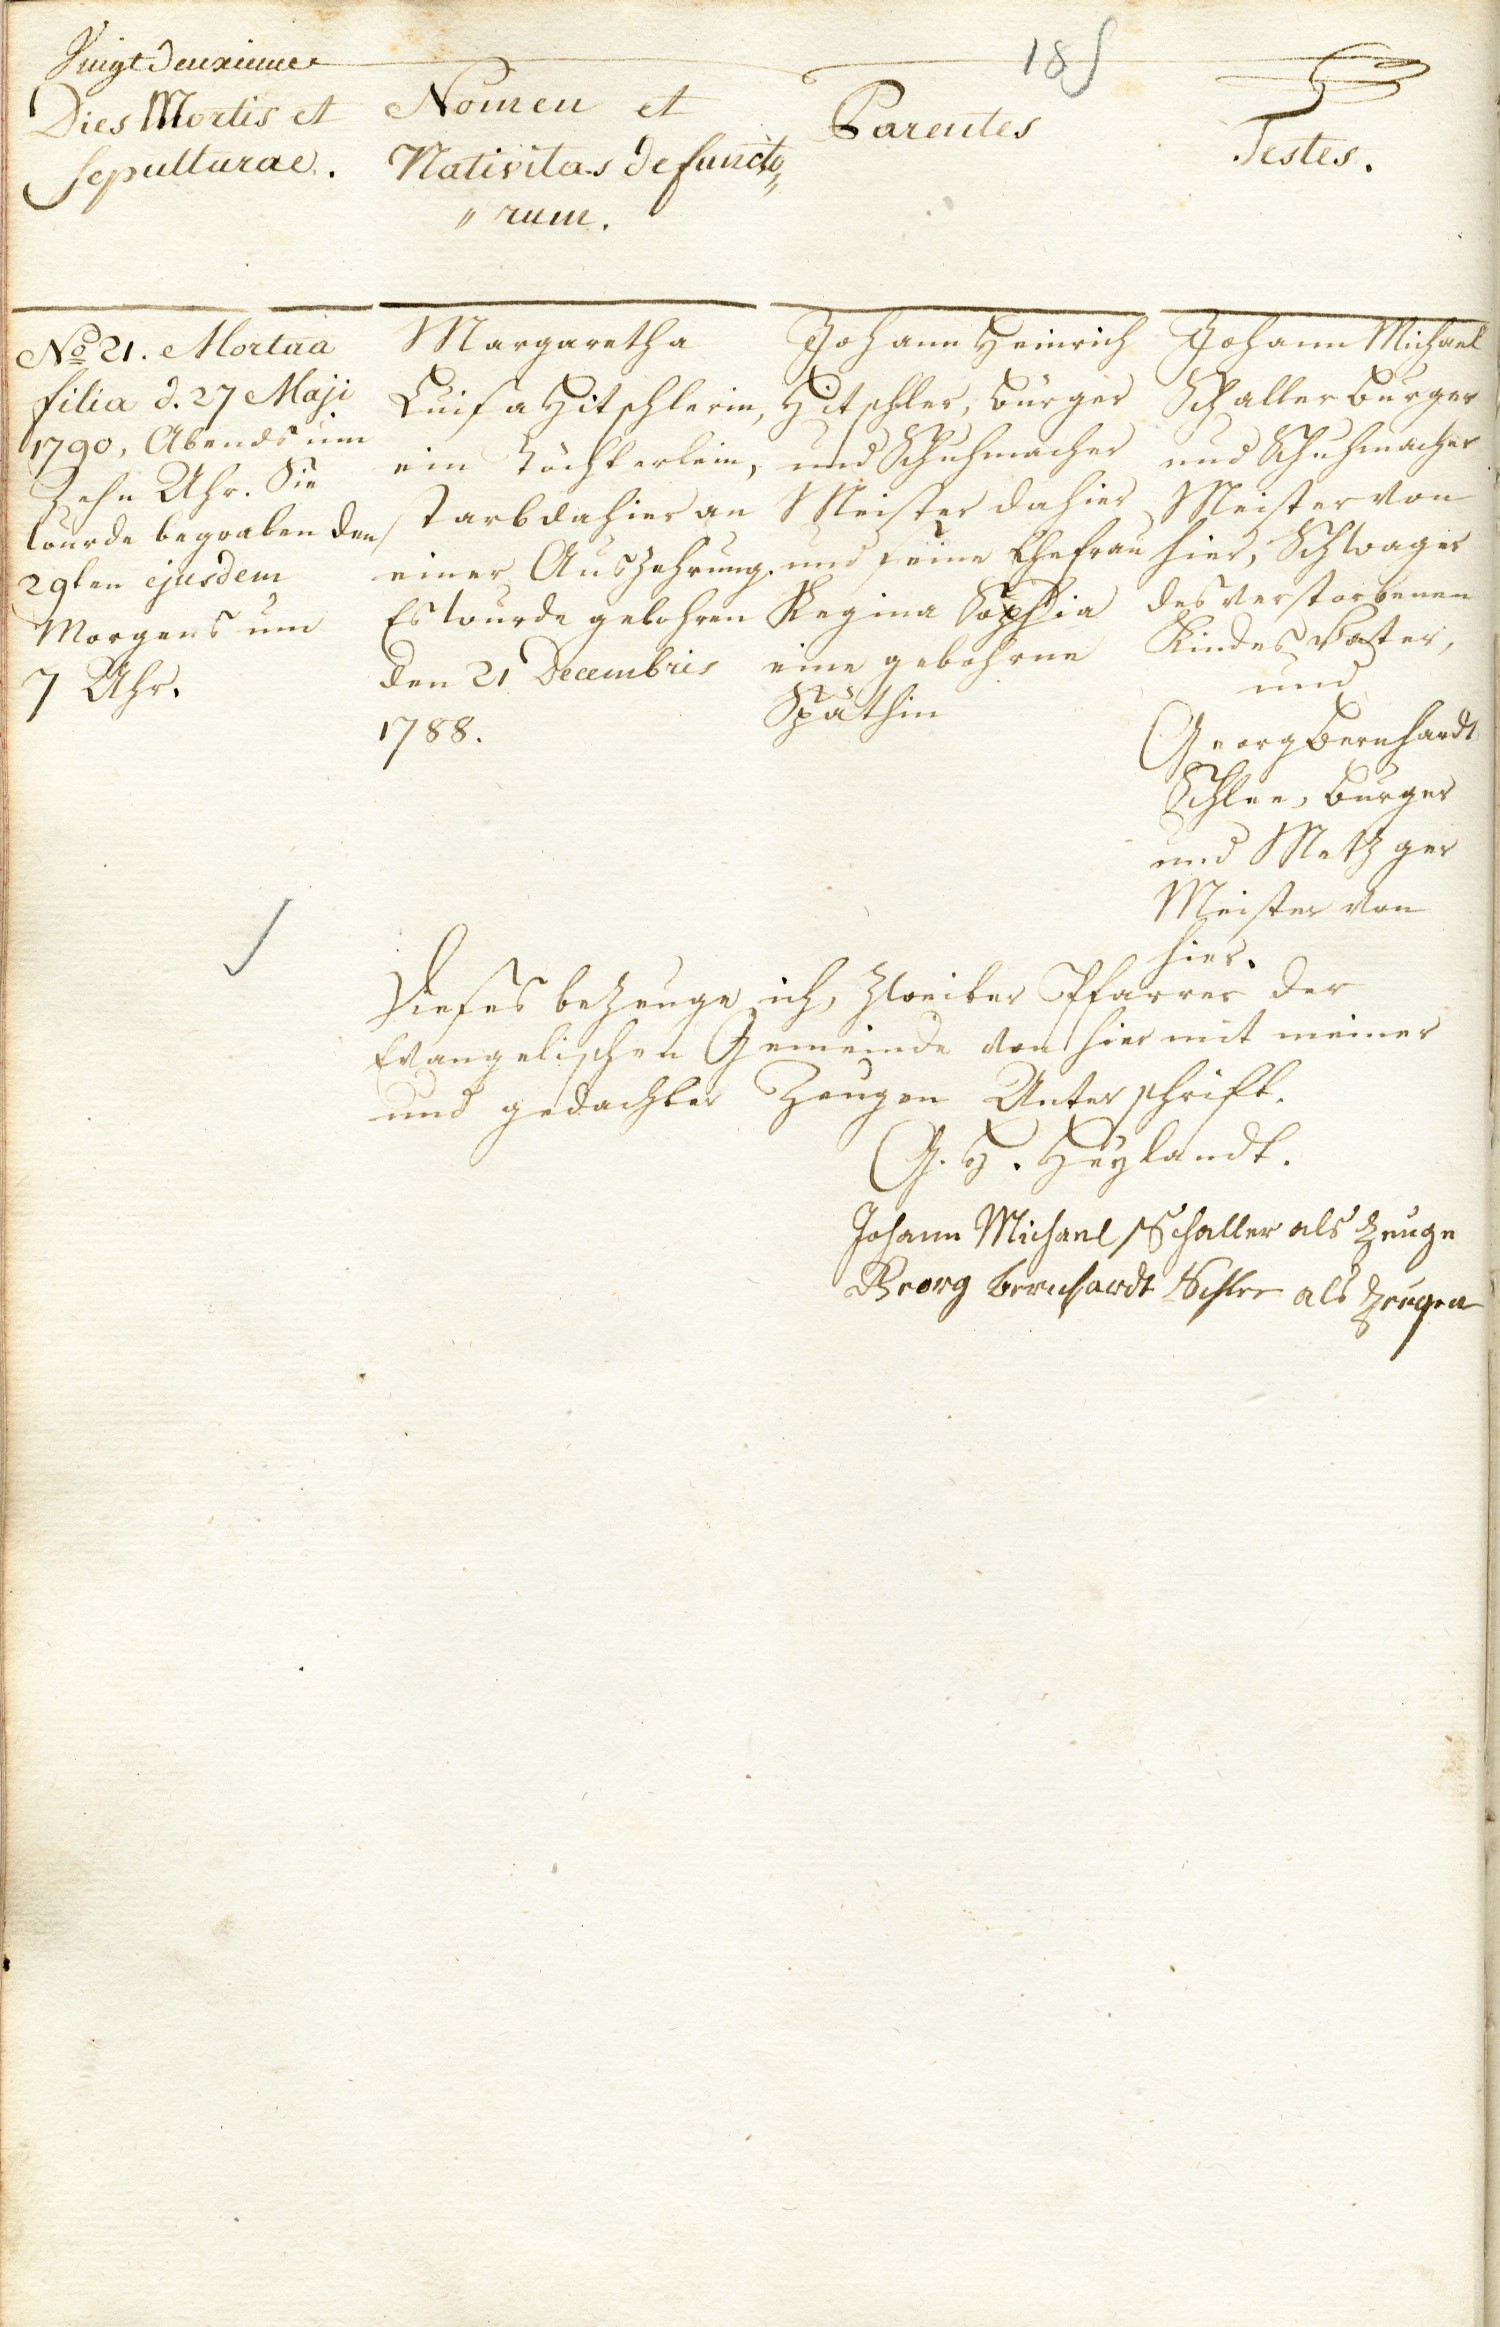 Vingt deuxieme
18
Dies Mortis et
sepulturae.
Nomen et
Nativitas defuncto„
„rum.
Parentes
Testes.
No 21. Mortua
filia d. 27 Maji
1790, Abends um
Zehn Uhr. Sie
wurde begraben den
29ten ejusdem
Morgens um
7 Uhr.
Margaretha
Luisa Hitschlerin,
ein Töchterlein,
starb dahier an
einer Auszehrung.
Es wurde gebohren
den 21 Decembris
1788.
Johann Heinrich
Hitschler, Bürger
und Schuhmacher
Meister dahier
und seine Ehefrau
Regina Sophia
eine gebohrne
Späthin
Johann Michael
Schaller Burger
und Schuhmacher
Meister von
hier, Schwager
des verstorbenen
Kindes Vater,
und
Georg Bernhardt
Schlee, Burger
und Metzger
Meister von
hier.
Dieses bezeuge ich, Zweiter Pfarrer der
Evangelischen Gemeinde von hier mit meiner
und gedachter Zeugen Unterschrift.
G. H. Heylandt.
Johann Michael Schaller als Zeuge
Georg Bernhardt Schlee als Zeugen